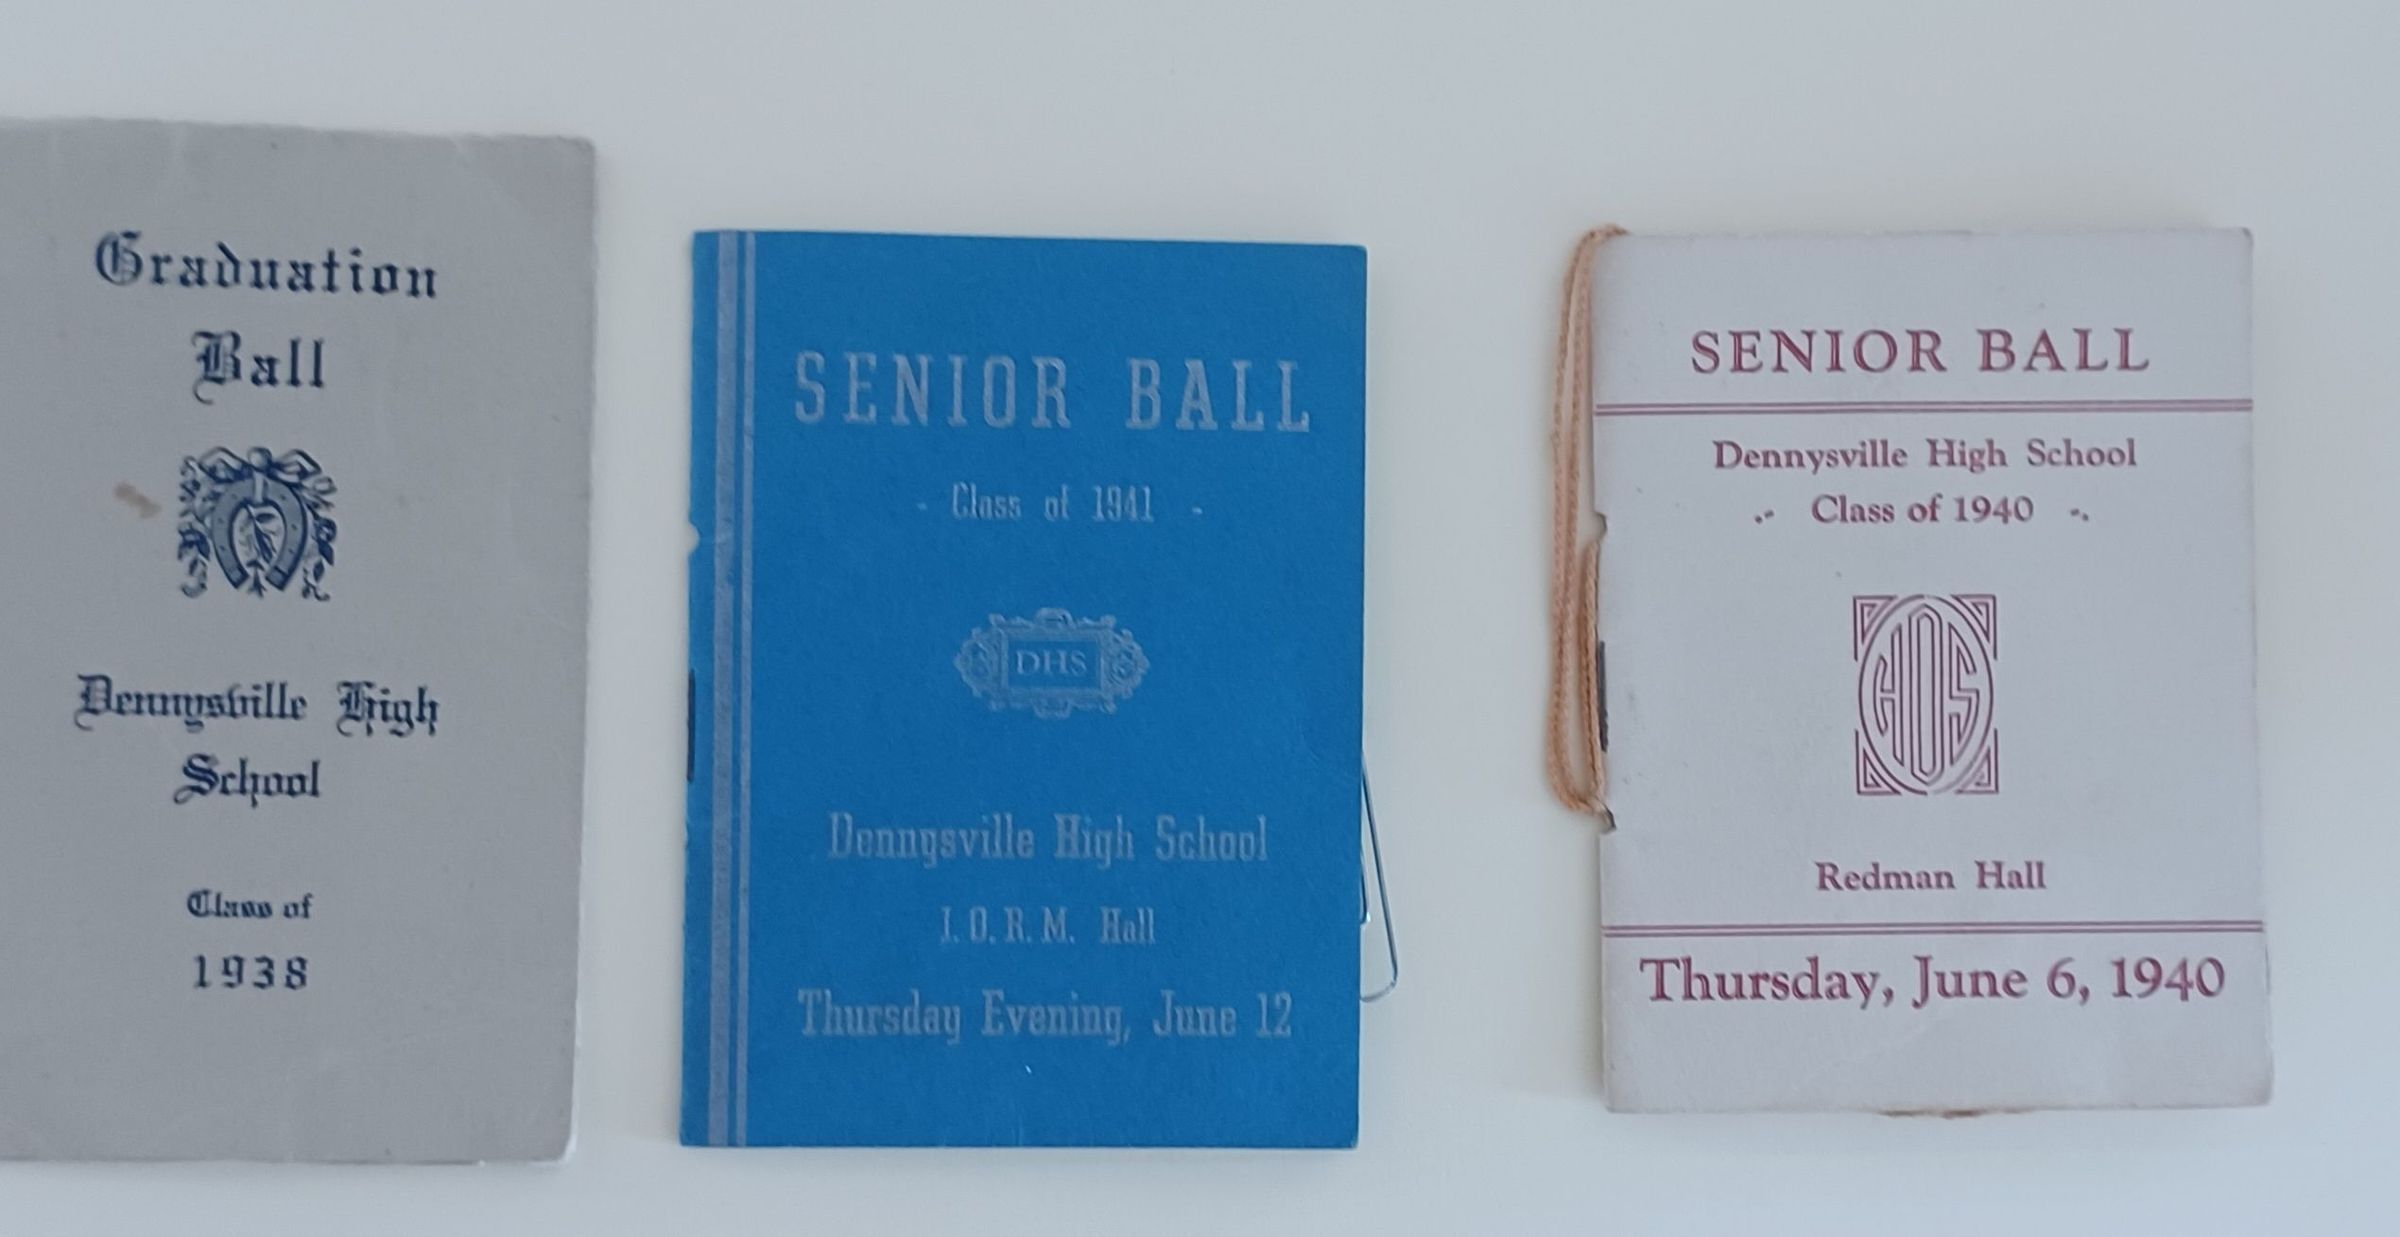 Graduation
Ball
Dennysville High
School
Class of
1938
SENIOR BALL
- Class of 1941 -
DHS
Dennysville High School
I. O. R. M. Hall
Thursday Evening, June 12
SENIOR BALL
Dennysville High School
.- Class of 1940 -.
HDS
Redman Hall
Thursday, June 6, 1940